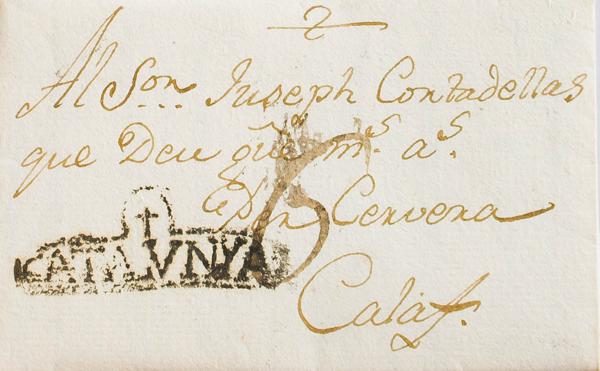 2
Al Son... Juseph Contadellas
que Deu gue ms. as.
Per Cervera
5
CATALVNYA
Calaf.